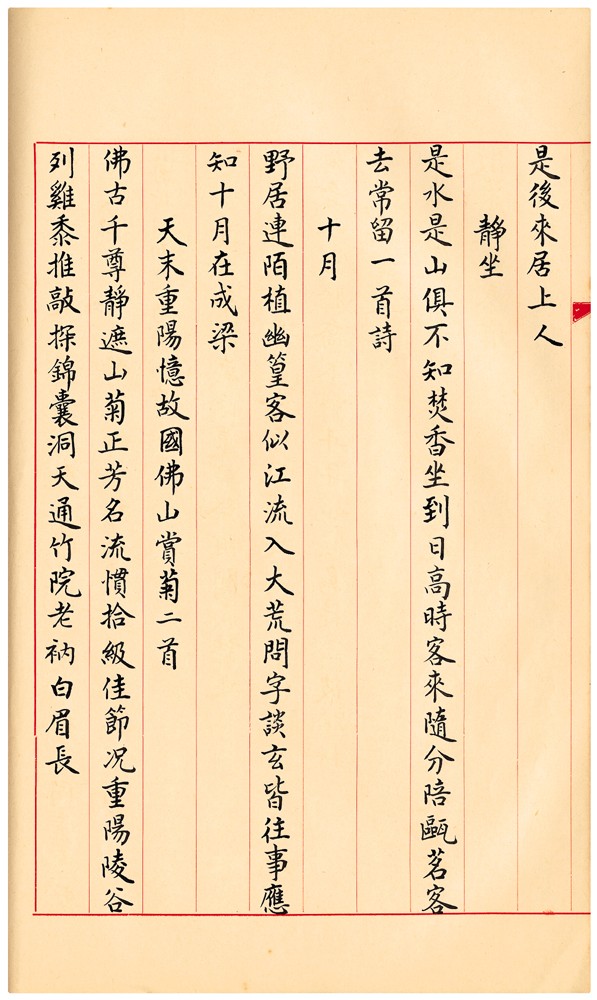 是後來居上人
靜坐
是水是山俱不知焚香坐到日高時客來隨分陪甌茗客
去常留一首詩
十月
野居連陌植幽篁客似江流入大荒問字談玄皆往事應
知十月在成梁
天末重陽憶故國佛山賞菊二首
佛古千尊靜遮山菊正芳名流慣拾級佳節況重陽陵谷
列雞黍推敲探錦囊洞天通竹院老衲白眉長